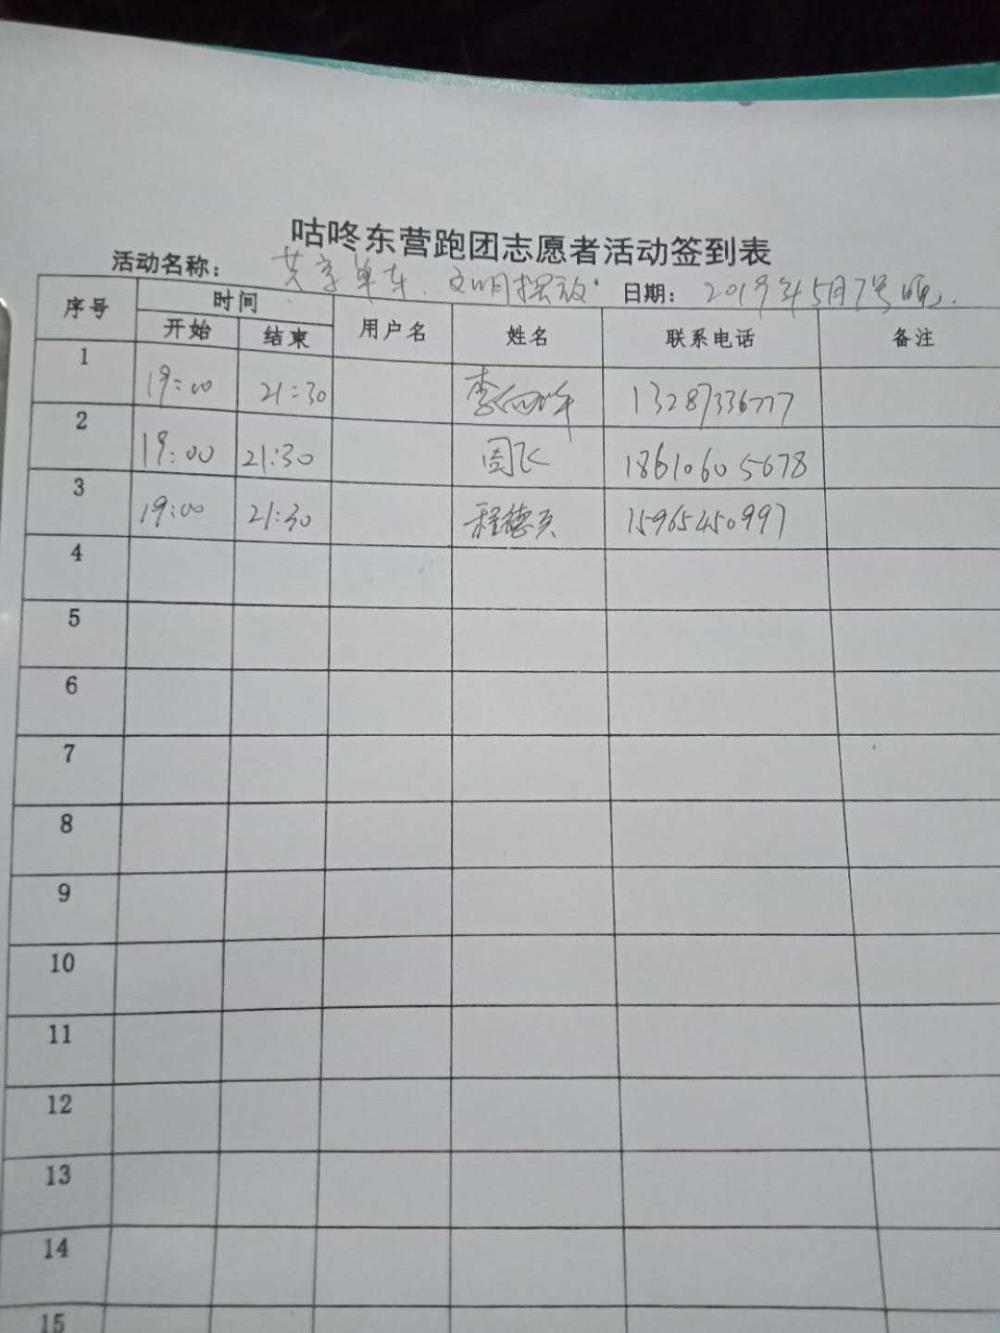 咕咚东营跑团志愿者活动签到表
活动名称： 共享单车、文明摆放 日期： 2019年5月7号晚.
序号 时间 用户名 姓名 联系电话 备注
开始 结束
1 19:00 21:30 13287336777
2 19:00 21:30 周飞 18610605678
3 19:00 21:30 程德 15965450997
4
5
6
7
8
9
10
11
12
13
14
15